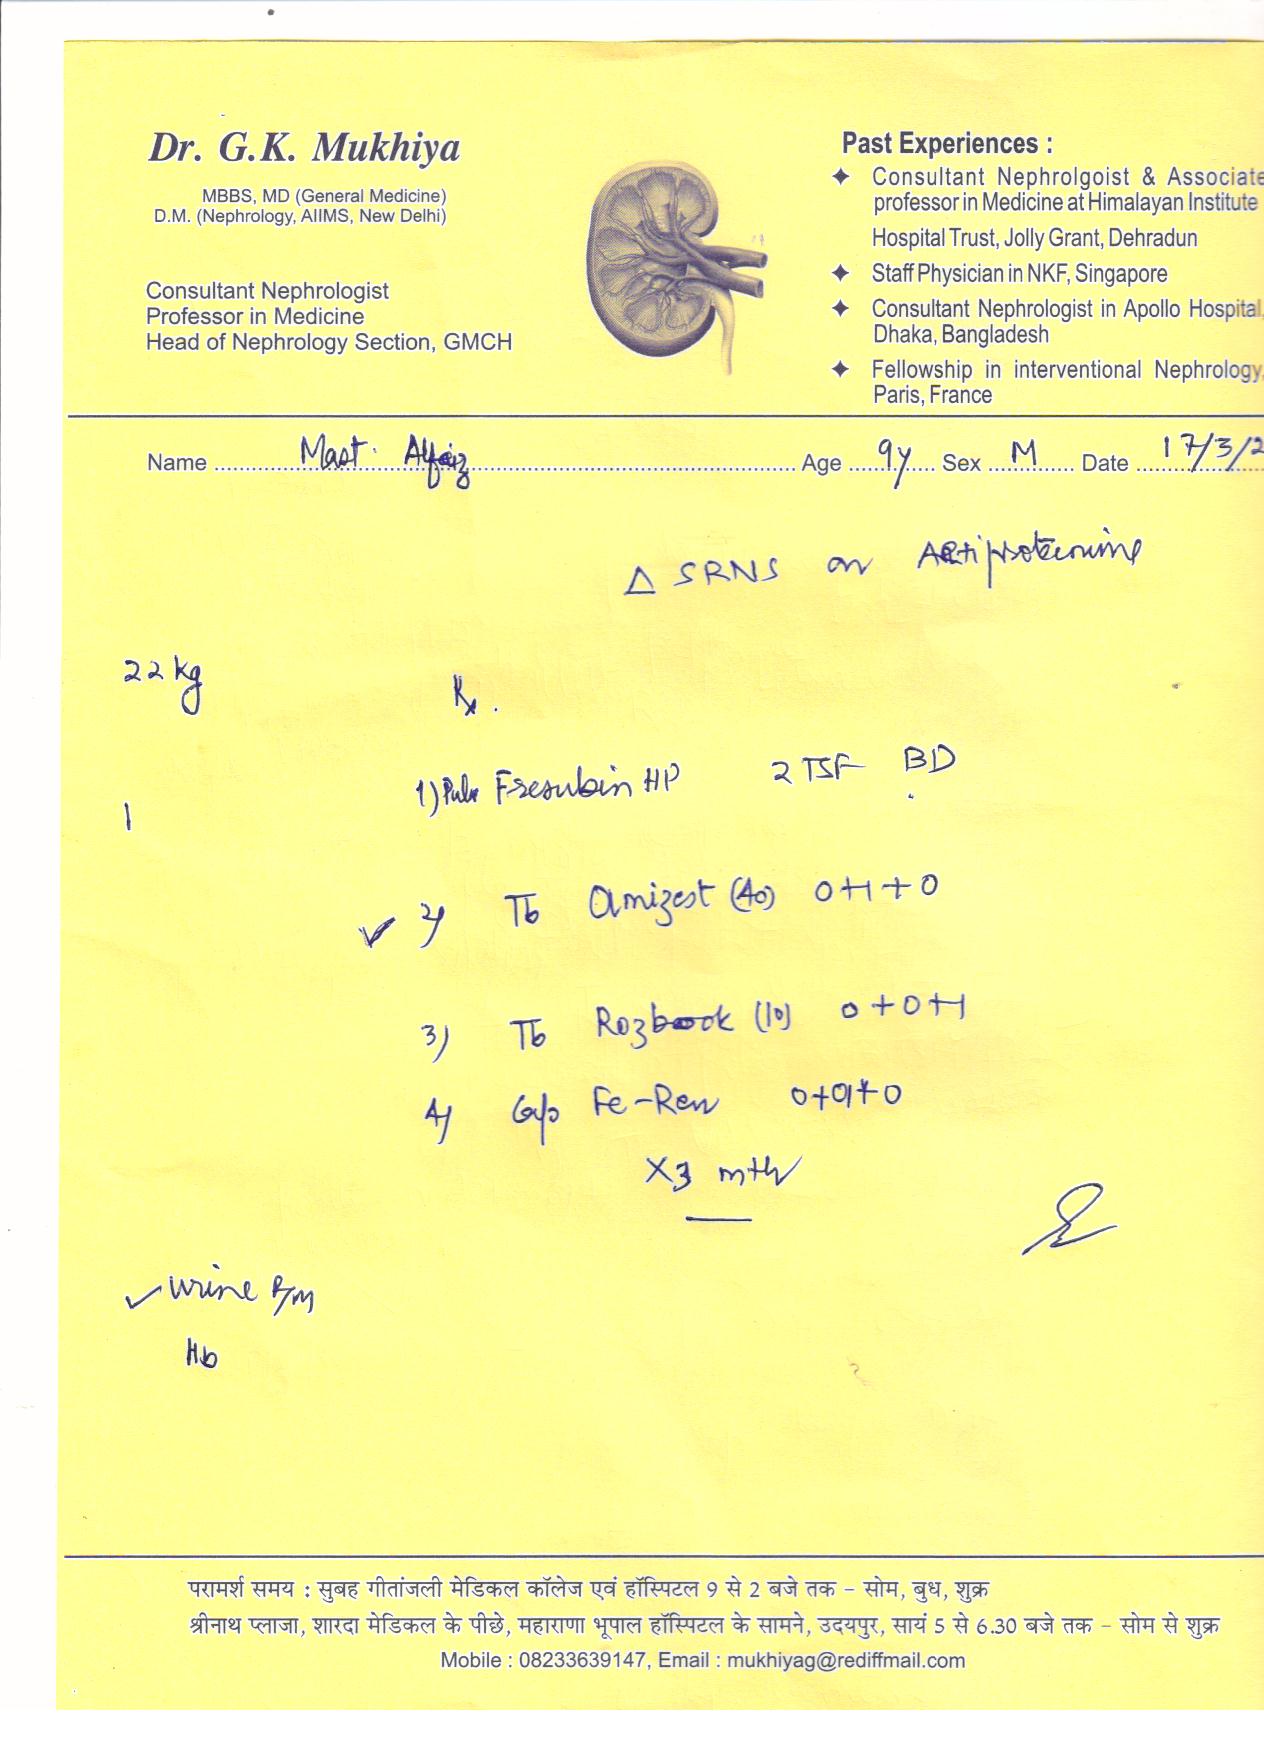 Dr. G.K. Mukhiya
MBBS, MD (General Medicine)
D.M. (Nephrology, AIIMS, New Delhi)
Consultant Nephrologist
Professor in Medicine
Head of Nephrology Section, GMCH
Past Experiences :
✦ Consultant Nephrolgoist & Associate
professor in Medicine at Himalayan Institute
Hospital Trust, Jolly Grant, Dehradun
✦ Staff Physician in NKF, Singapore
✦ Consultant Nephrologist in Apollo Hospital,
Dhaka, Bangladesh
✦ Fellowship in interventional Nephrology,
Paris, France
Name Mast. Alfaiz Age 9y Sex M Date 17/3/2
Δ SRNS on
22 kg
Rx.
1) Fresubin HP 2 TSF BD
1
2) Tb (40) 0+1+0
3) Tb (10) 0+0+1
4) Cap Fe-Ren 0+1+0
X3 mth
Urine R/M
Hb
परामर्श समय : सुबह गीतांजली मेडिकल कॉलेज एवं हॉस्पिटल 9 से 2 बजे तक – सोम, बुध, शुक्र
श्रीनाथ प्लाजा, शारदा मेडिकल के पीछे, महाराणा भूपाल हॉस्पिटल के सामने, उदयपुर, सायं 5 से 6.30 बजे तक – सोम से शुक्र
Mobile : 08233639147, Email : mukhiyag@rediffmail.com